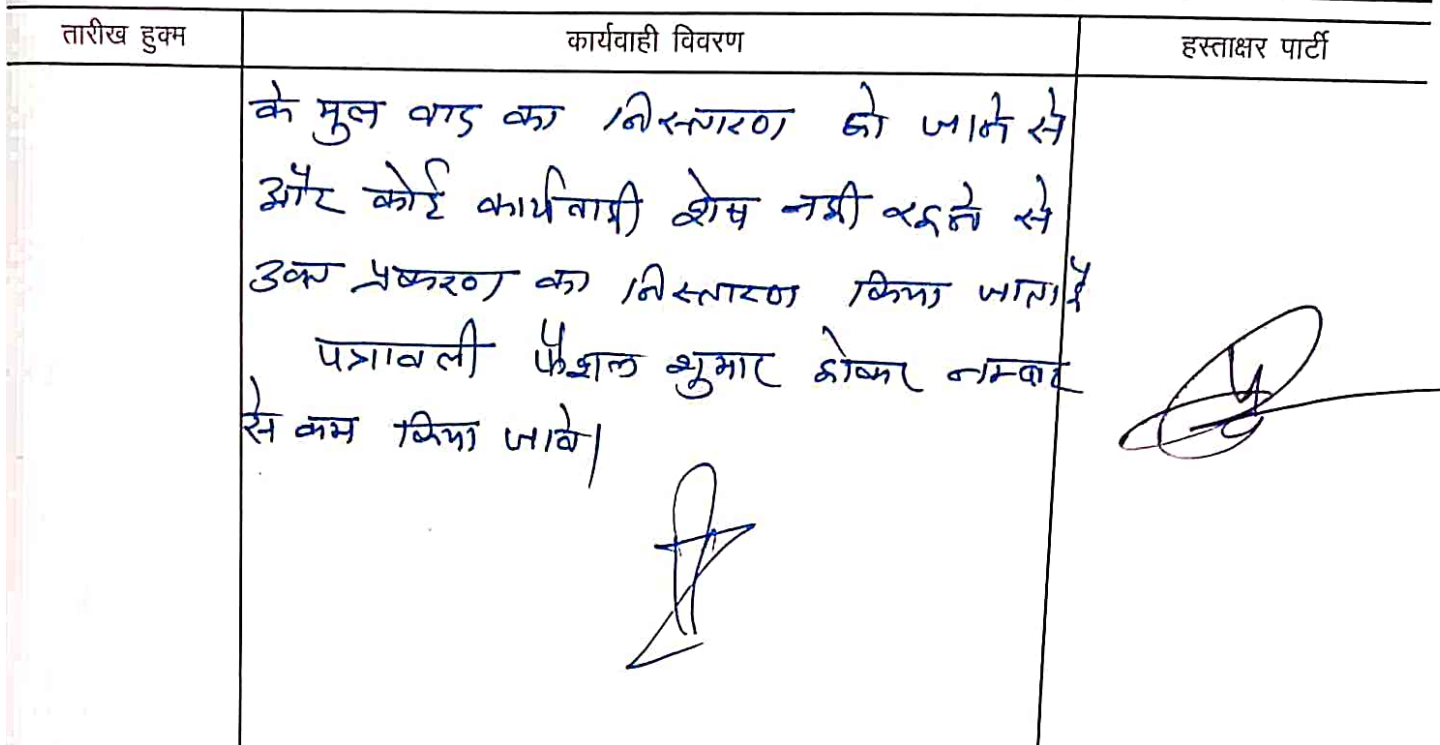 तारीख हुक्म कार्यवाही विवरण हस्ताक्षर पार्टी
के मुल वाद का निस्तारण हो जाने से
और कोई कार्यवाही शेष नही रहने से
उक्त प्रकरण का निस्तारण किया जाता है
पत्रावली फैशल शुमार होकर नम्बर
से कम किया जावे।